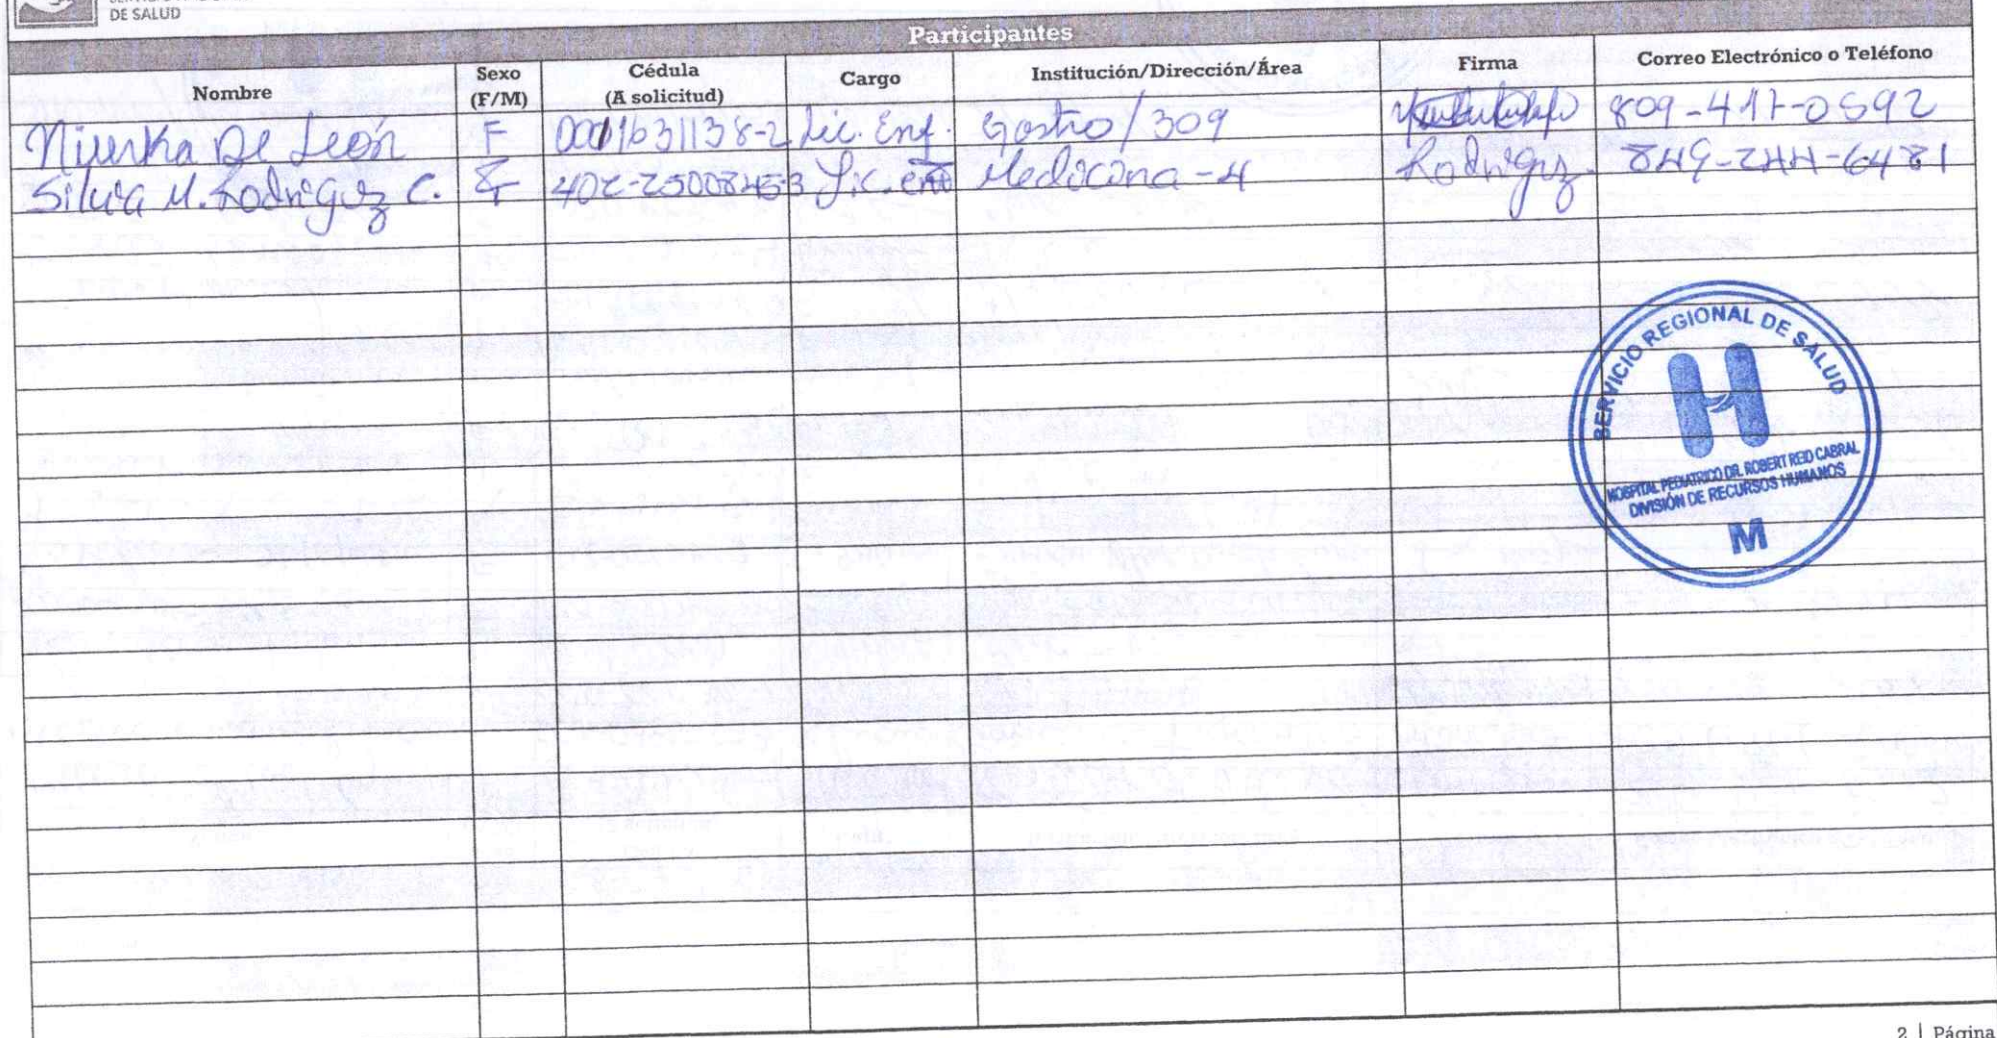 DE SALUD
Participantes
Nombre Sexo (F/M) Cédula (A solicitud) Cargo Institución/Dirección/Área Firma Correo Electrónico o Teléfono
Niurka De León F 0011631138-2 Lic. Enf. Gastro/309 809-417-0592
Silvia M. Rodriguez C. F 402-2500845-3 Lic. enf Medicina-4 Rodriguez. 849-244-6481
SERVICIO REGIONAL DE SALUD
HOSPITAL PEDIATRICO DR. ROBERT REID CABRAL
DIVISIÓN DE RECURSOS HUMANOS
M
2 | Página